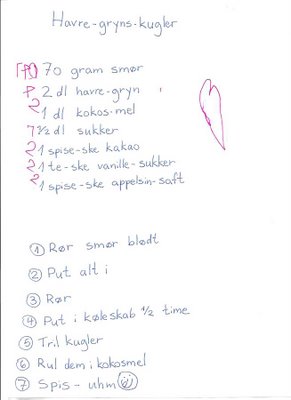 Havre-gryns-kugler
70 gram smør
2 dl havre-gryn
2 1 dl kokos-mel
7 1/2 dl sukker
2 1 spise-ske kakao
2 1 te-ske vanille-sukker
2 1 spise-ske appelsin-saft
① Rør smør blødt
② Put alt i
③ Rør
④ Put i køleskab 1/2 time
⑤ Tril kugler
⑥ Rul dem i kokosmel
⑦ Spis - uhm